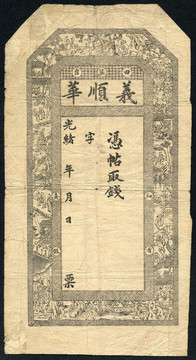 義順華
憑帖取錢
字
光緒 年 月 日 票